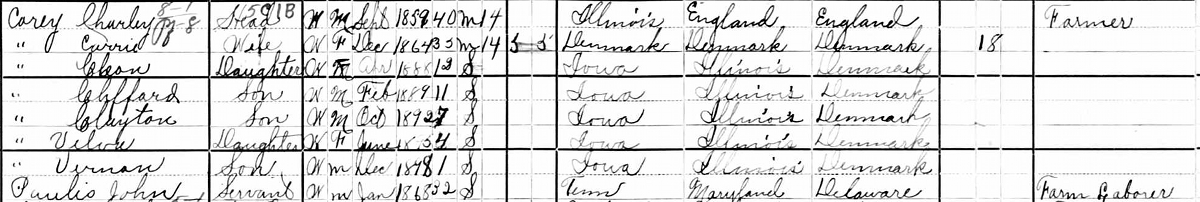 Corey Charley Head W M Sept 1859 40 M 14 Illinois England England Farmer
" Carrie Wife W F Dec 1864 35 M 14 5 5 Denmark Denmark Denmark 18
" Daughter W F 12 S Iowa Illinois Denmark
" Clifford Son W M Feb 1889 11 S Iowa Illinois Denmark
" Clayton Son W M Oct 1892 7 S Iowa Illinois Denmark
" Daughter W F June 4 S Iowa Illinois Denmark
" Vernan Son W M Dec 1 S Iowa Illinois Denmark
Paulis John Servant W M Jan 1868 32 S Tenn Maryland Delaware Farm Laborer